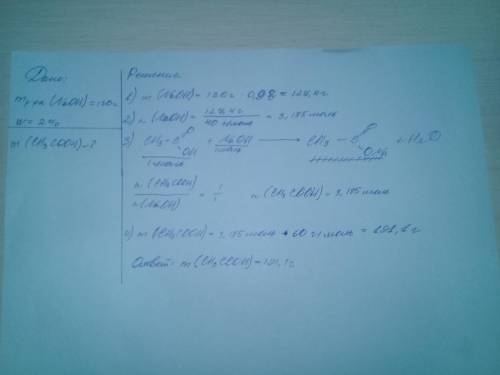 Дано:
m р-ра (NaOH) = 130г
w = 2%
m (CH3COOH) - ?
Решение
1) m (NaOH) = 130г · 0,98 = 127,4г
2) n (NaOH) = 127,4г / 40 г/моль = 3,185 моль
3) CH3 - C O OH + NaOH → CH3 - C O ONa + H2O
1 моль 1 моль
n (CH3COOH) / n (NaOH) = 1 / 1 n (CH3COOH) = 3,185 моль
4) m (CH3COOH) = 3,185 моль · 60 г/моль = 191,1г
Ответ: m (CH3COOH) = 191,1г